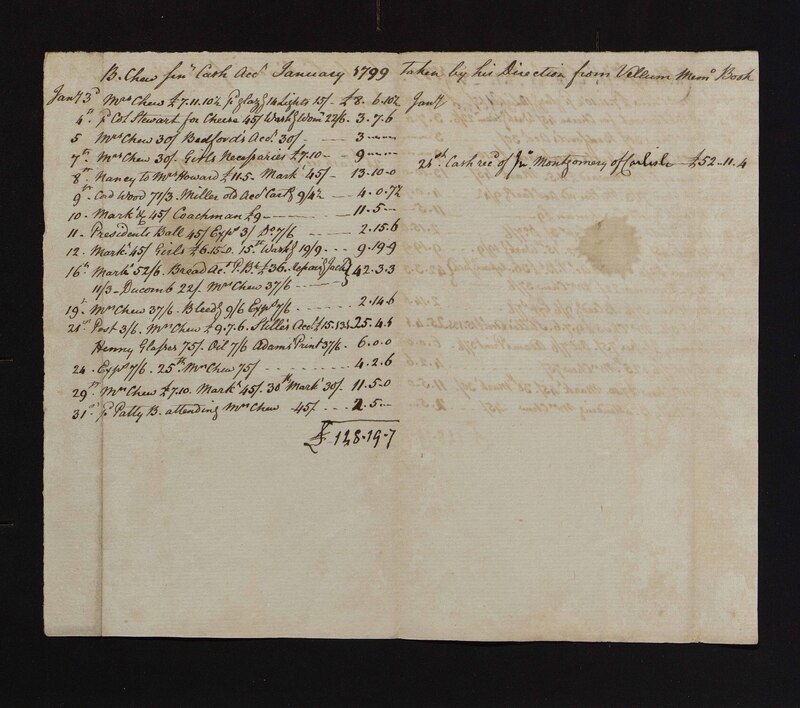 B. Chew Senr Cash Acct January 1799 Taken by his Direction from Vellum Memo Book
Jany 3d Mrs Chew £7.11.10½ pd glazg 14 lights 15/ - £8.6.10½
4th pd Col Stewart for Cheese 45/ Washg Wom 22/6 3.7.6
5 Mrs Chew 30/ Bedford's Acct 30/ - 3 —
7th Mrs Chew 30/. Girls Necessaries £7.10 - 9 —
8th Nancy to Mrs Howard £11.5 Markt 45/ 13.10.0
9th Cord Wood 71/3 Miller old Acct Cartg 9/4½ - 4.0.7½
10. Markt 45/ Coachman £9 - 11.5 -
11. Presidents Ball 45/ Exps 3/ Do 7/6 2.15.6
12. Markt 45/ Girls £6.15.0. 15th Washg 19/9 - 9.19.9
16th Markt 52/6 Bread Act £36. repairg Jack } 42.3.3
11/3 - Ducomb 22/. Mrs Chew 37/6 - }
19. Mrs Chew 37/6. Bleedg 9/6 Exps 7/6 2.14.6
21st Post 3/6. Mrs Chew £9.7.6. Stille's Acct £15.13.4 25.4.4
Henny Glasses 75/. Oil 7/6 Adams Print 37/6. 6.0.0
24. Exps 7/6. 25th Mrs Chew 75/ 4.2.6
29th Mrs Chew £7.10. Markt 45/. 30th Markt 30/. 11.5.0
31st pd Patty B. attending Mrs Chew 45/. - 2.5 -
£ 128.19.7
Jany
24th Cash recd of Jno Montgomery of Carlisle £52.11.4